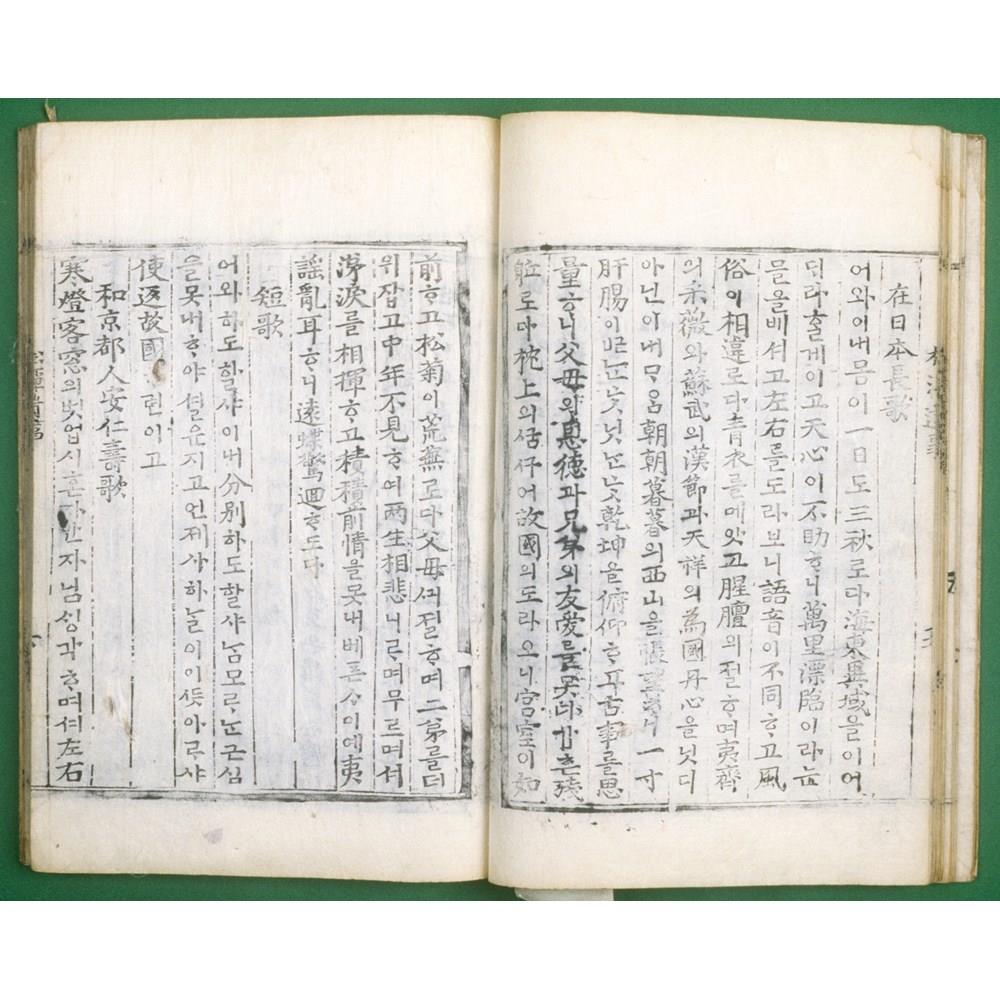 在日本長歌
어와어내몸이一日도三秋로다海東異域을이어
天心이不助ᄒᆞ니萬里漂臨이라
믈을베셔고左右를도라보니語音이不同ᄒᆞ고風
俗이相違로다靑衣를메앗고腥膻의절ᄒᆞ며夷齊
의采薇와蘇武의漢節과天祥의為國丹心을닛디
아닌이내ᄆᆞᄋᆞᆷ朝朝暮暮의西山을悵望ᄒᆞ니一寸
肝腸이 乾坤을俯仰ᄒᆞ며古事를思
量ᄒᆞ니父母의恩德과兄弟의友愛를못 殘
로다枕上의 故國의도라오니宮室이如
前ᄒᆞ고松菊이荒蕪로다父母ᄭᅴ절ᄒᆞ며二弟를더
위잡고中年不見ᄒᆞ여兩生相悲니ᄅᆞ며무르며셔
涕淚를相揮ᄒᆞ고積積前情을못내베픈ᄉᆞ이예夷
謠亂耳ᄒᆞ니遠蝶驚迴ᄒᆞ도다
短歌
어와하도할샤이내分別하도할샤ᄂᆞᆷ모ᄅᆞᄂᆞᆫ근심
을못내ᄒᆞ야셜운지고언제사하ᄂᆞᆯ이이ᄠᅳᆺ아ᄅᆞ샤
使返故國 런이고
和京都人安仁壽歌
寒燈客窓의벗업시혼자안자님ᄉᆡᆼ각ᄒᆞ며셔左右